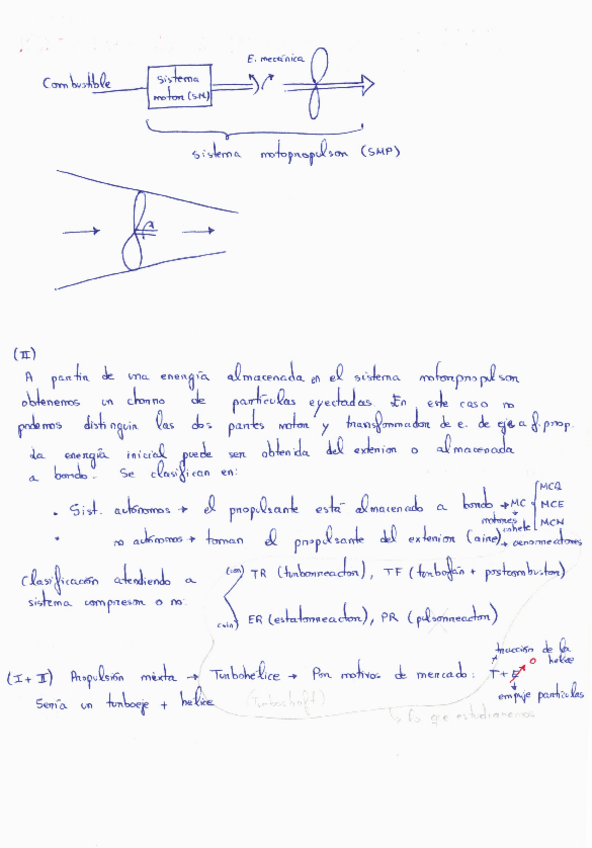 E. mecánica
Combustible
Sistema
motor (SM)
sistema motopropulsor (SMP)
(II)
A partir de una energía almacenada en el sistema motorpropulsor
obtenemos un chorro de partículas eyectadas. En este caso no
podemos distinguir las dos partes motor y transformador de e. de eje a f. prop.
La energía inicial puede ser obtenida del exterior o almacenada
a bordo. Se clasifican en:
• Sist. autónomos → el propulsante está almacenado a bordo → MC
motores cohete
MCQ
MCE
MCN
• no autónomos → toman el propulsante del exterior (aire) → aerorreactores
Clasificación atendiendo a
sistema compresor o no:
(con) TR (turborreactor), TF (turbofán + postcombustor)
(sin) ER (estatorreactor), PR (pulsorreactor)
tracción de la
hélice
(I + II) Propulsión mixta → Turbohélice → Por motivos de mercado: T + E
0
empuje partículas
Sería un turboeje + hélice (Turboshaft)
lo que estudiaremos